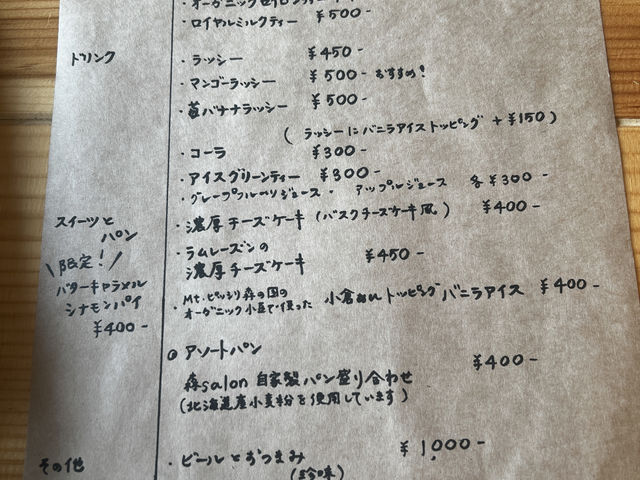 ・オーガニックセイロンティー
・ロイヤルミルクティー ¥500-
ドリンク
・ラッシー ¥450-
・マンゴーラッシー ¥500- おすすめ!
・苺バナナラッシー ¥500-
(ラッシーにバニラアイストッピング +¥150)
・コーラ ¥300-
・アイスグリーンティー ¥300-
・グレープフルーツジュース・アップルジュース 各¥300-
スイーツと
パン
・濃厚チーズケーキ(バスクチーズケーキ風) ¥400-
・ラムレーズンの
濃厚チーズケーキ ¥450-
\限定!/
バターキャラメル
シナモンパイ
¥400-
・Mt.ピッシリ森の国の
オーガニック小豆で使った 小倉あんトッピングバニラアイス ¥400-
◎アソートパン ¥400-
森salon 自家製パン盛り合わせ
(北海道産小麦粉を使用しています)
その他
・ビールとおつまみ ¥1,000-
(珍味)